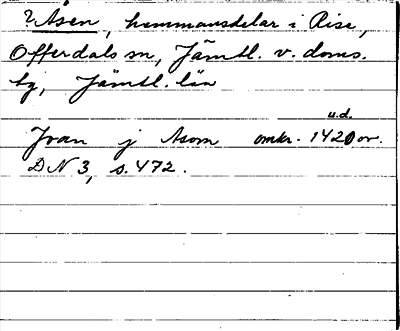 ? Åsen, hemmansdelar i Rise,
Offerdals sn, Jämtl. v. doms.
tg, Jämtl. län
u.d.
Jvan j Asom omkr. 1420 or.
DN 3, s. 472.